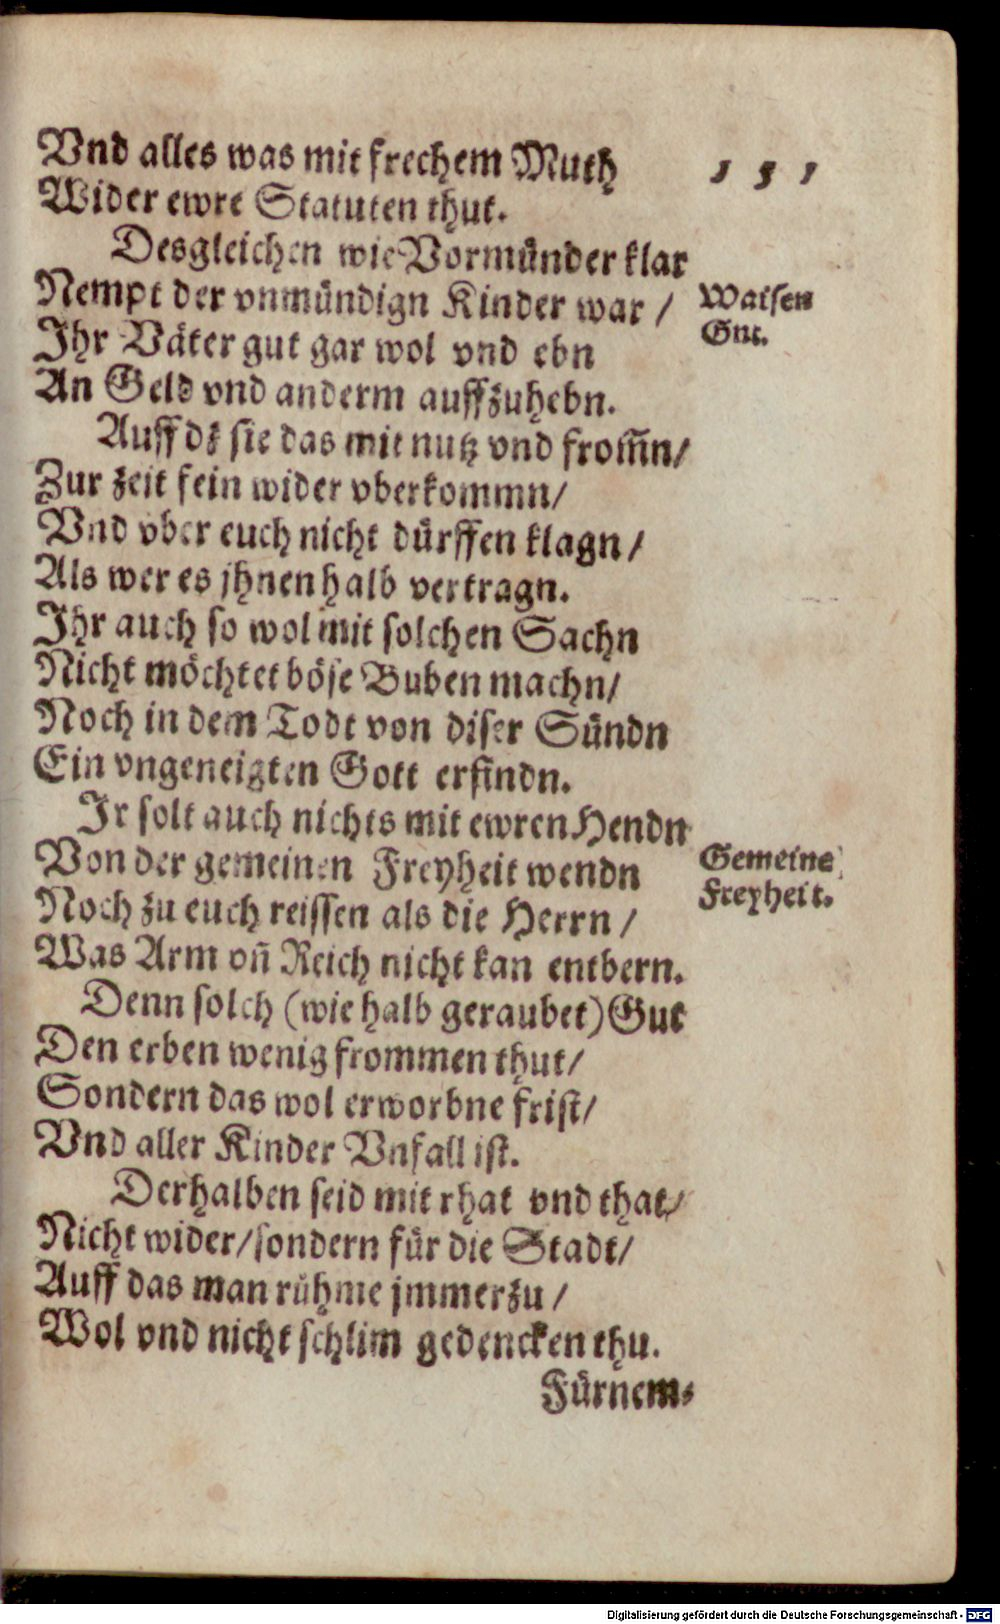 Vnd alles was mit frechem Muth
151
Wider ewre Statuten thut.
Desgleichen wie Vormünder klar
Nempt der vnmündign Kinder war /
Waisen
Gut.
Ihr Väter gut gar wol vnd ebn
An Geld vnd anderm auffzuhebn.
Auff dz sie das mit nutz vnd from̃n/
Zur zeit fein wider vberkommn/
Vnd vber euch nicht dürffen klagn /
Als wer es jhnen halb vertragn.
Ihr auch so wol mit solchen Sachn
Nicht möchtet böse Buben machn/
Noch in dem Todt von diser Sündn
Ein vngeneigten Gott erfindn.
Ir solt auch nichts mit ewren Hendn
Von der gemeinen Freyheit wendn
Gemeine
Freyheit.
Noch zu euch reissen als die Herrn /
Was Arm vñ Reich nicht kan entbern.
Denn solch (wie halb geraubet) Gut
Den erben wenig frommen thut/
Sondern das wol erworbne frist/
Vnd aller Kinder Vnfall ist.
Derhalben seid mit rhat vnd that/
Nicht wider/sondern für die Stadt/
Auff das man rühme jmmerzu /
Wol vnd nicht schlim gedencken thu.
Fürnem-
Digitalisierung gefördert durch die Deutsche Forschungsgemeinschaft - DFG